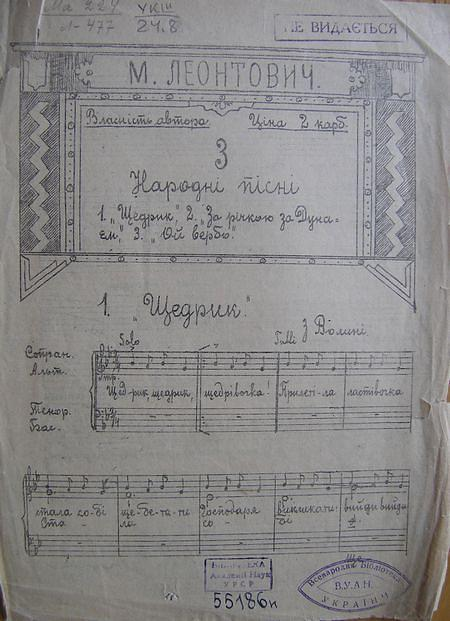 УКІН
Л-477 24.8
НЕ ВИДАЄТЬСЯ
М. ЛЕОНТОВИЧ.
Власність автора. Ціна 2 карб.
3
Народні пісні
1. „Щедрик", 2. „За річкою за Дуна-
єм", 3. „Ой вербо".
1. „Щедрик."
Solo Tutti З Волині
Сопран.
Альт.
Щед-рик щедрик, щедрівочка! Прилеті-ла ластівочка
Тенор.
Бас.
стала со-бі ще-бе-та-ти Господаря викликати: вийди вийди
Ста - ла со - бі
БІБЛІОТЕКА
Академії Наук
УРСР
55186н
Всенародня Бібліотека
В.У.А.Н.
УКРАЇНИ